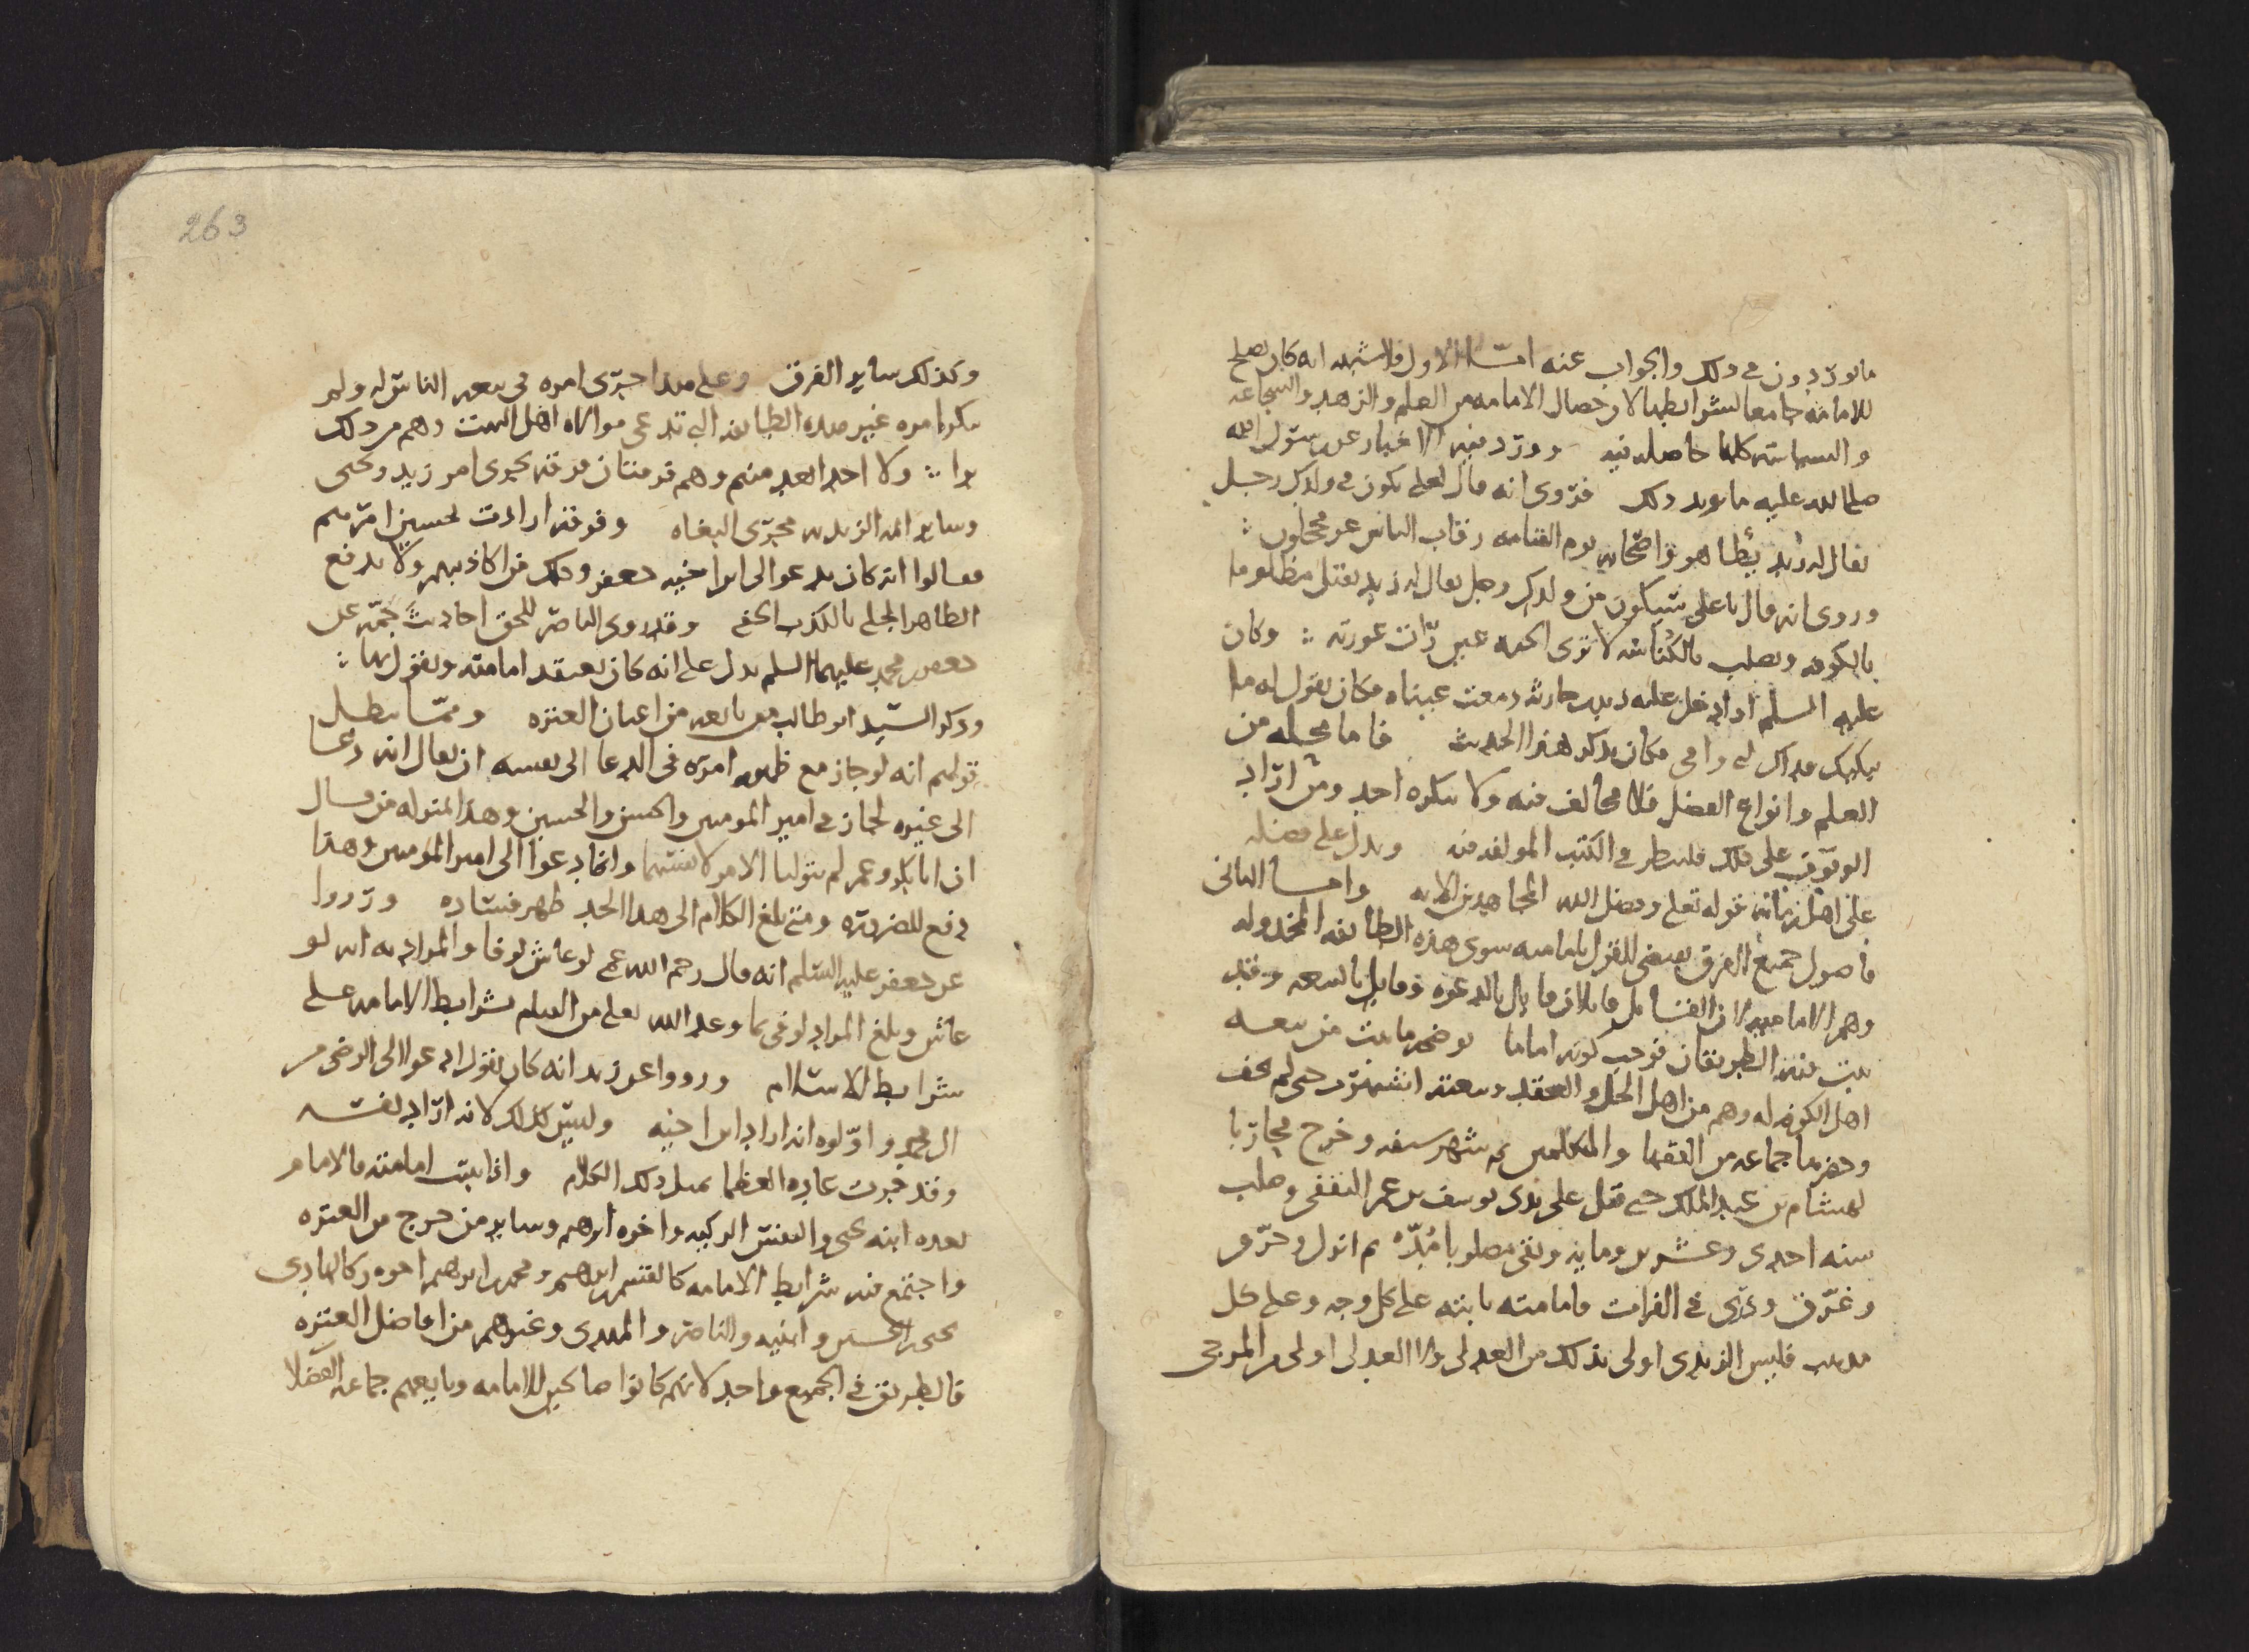 ما يوردون في ذلك والجواب عنه اما الاول فلا شبهه انه كان يصلح
للامامة جامعا لشرايطها لان خصال الامامه من العلم والزهد والشجاعه
والسياسة كلها حاصله فيه وورد فيه الاخبار عن رسول الله
صلى الله عليه ما يويد ذلك فروى انه قال لعلي يكون في ولدك رجل
يقال له زيد يتخطا هو واصحابه يوم القيامه رقاب الناس غر محجلون
وروى انه قال يا علي سيكون من ولدك رجل يقال له زيد يقتل مظلوما
بالكوفه ويصلب بالكناسه لا ترى الجنه عين رات عورته وكان
عليه السلم اذا دخل عليه زيد بن حارثه دمعت عيناه فكان يقول له ما
يبكيك فداك ابي وامي فكان يذكر هذا الحديث فاما محله من
العلم وانواع الفضل فلا مخالف فيه ولا ينكره احد ومن اراد
الوقوف على ذلك فلينظر في الكتب المولفه فيه ويدل على فضله
على اهل زمانه قوله تعلى وفضل الله المجاهدين الايه واما الثاني
فاصول جميع الفرق يقتضي للقول بامامته سوى هذه الطايفه المخذوله
وهم الاماميه لان الناس بين قايلان قايل بالدعوه وقايل بالبيعه وقد
ثبت فيه الطريقان فوجب كونه اماما يوضحه ما ثبت من بيعه
اهل الكوفه له وهم من اهل الحل والعقد وبيعته اشتهرت حتى لم تخف
وحضرها جماعه من الفقها والمتكلمين ثم شهر سيفه وخرج محاربا
لهشام بن عبد الملك حتى قتل على يدي يوسف بن عمر الثقفي وصلب
سنه احدى وعشرين ومايه وبقى مصلوبا مدة ثم انزل وحرق
وغرق وذري في الفرات فامامته ثابته على كل وجه وعلى كل
مذهب فليس الزيدي اولى بذلك من العدلي ولا العدلي اولى من المرجي
263
وكذلك ساير الفرق وعلى هذا جرى امره في بيعه الناس له ولم
ينكر امره غير هذه الطايفه التي تدعي موالاه اهل البيت وهم من ذلك
برا ولا احد ابعد منهم وهم فرقتان فرقه تجري امر زيد ويحيى
وساير ايمه الزيديه مجرى البغاه وفرقة ارادت تحسين امرهم
فقالوا انه كان يدعو الى ابن اخيه جعفر وذلك من اكاذيبهم ولا يدفع
الظاهر الجلي بالكذب الخفي وقد روى الناصر للحق احاديث جمة عن
جعفر بن محمد عليهما السلم يدل على انه كان يعتقد امامته ويقول بها
وذكر السيد ابو طالب من بايعه من اعيان العتره ومما يبطل
قولهم انه لو جاز مع ظهور امره في الدعا الى نفسه ان يقال انه دعا
الى غيره لجاز في امير المومنين والحسن والحسين وهذا بمنزله من قال
ان ابا بكر وعمر لم يتوليا الامر لانفسهما وانما دعوا الى امير المومنين وهذا
دفع للضروره ومتى بلغ الكلام الى هذا الحد ظهر فساده ورووا
عن جعفر عليه السلم انه قال رحم الله عمي لو عاش لوفا والمراد به انه لو
عاش وبلغ المراد لوفى بما وعد الله تعلى من العمل بشرايط الامامه على
شرايط الاسلام ورووا عن زيد انه كان يقول ادعوا الى الرضى من
ال محمد واولوه انه اراد ابن اخيه وليس كذلك لانه اراد نفسه
وقد جرت عادة العظما بمثل ذلك الكلام واذا ثبت امامته فالامام
بعده ابنه يحيى والنفس الزكيه واخوه ابرهيم وساير من خرج من العتره
واجتمع فيه شرايط الامامه كالقسم بن ابرهيم ومحمد بن ابرهيم اخوه وكالهادي
يحيى بن الحسين وابنيه والناصر والمهدي وغيرهم من افاضل العتره
فالطريق في الجميع واحد لانهم كانوا صالحين للامامه وبايعهم جماعه الفضلا